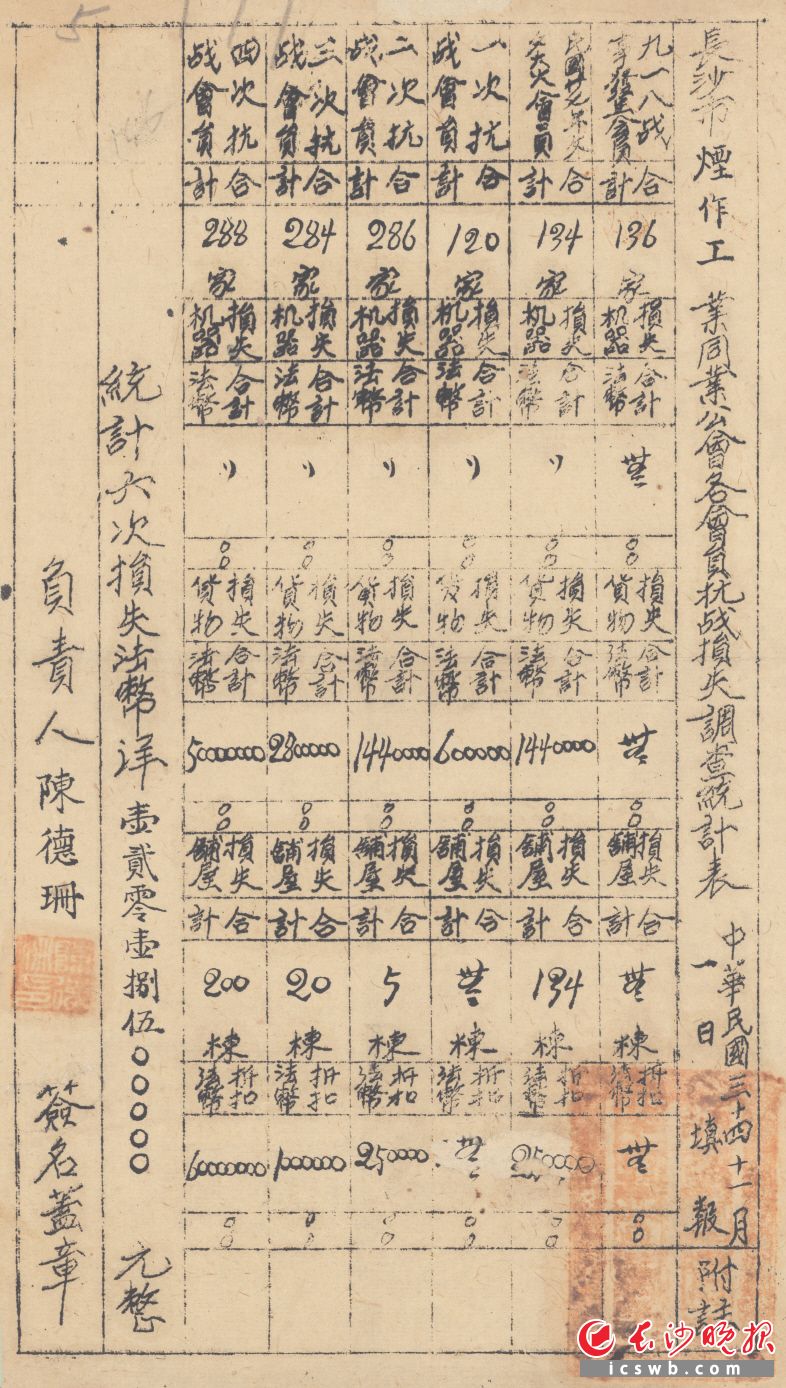 長沙市煙作工業同業公會各會員抗战損失調查統計表
中華民國三十四十一月一日填報
附註
九一八战事發生會員合計 136家 損失机器合計法幣 無 損失貨物合計法幣 無 損失舖屋合計 無棟 折扣法幣 無
民國廿七年大火會員合計 134家 損失机器合計法幣 〃 損失貨物合計法幣 1440000 損失舖屋合計 134棟 折扣法幣 250000
一次抗战會員合計 120家 損失机器合計法幣 〃 損失貨物合計法幣 600000 損失舖屋合計 無棟 折扣法幣 無
二次抗战會員合計 286家 損失机器合計法幣 〃 損失貨物合計法幣 1440000 損失舖屋合計 5棟 折扣法幣 250000
三次抗战會員合計 284家 損失机器合計法幣 〃 損失貨物合計法幣 損失舖屋合計 20棟 折扣法幣
四次抗战會員合計 288家 損失机器合計法幣 〃 損失貨物合計法幣 損失舖屋合計 200棟 折扣法幣
統計六次損失法幣洋壹貳零壹捌伍00000元整
負責人陳德珊 簽名蓋章
長沙晚报
icswb.com